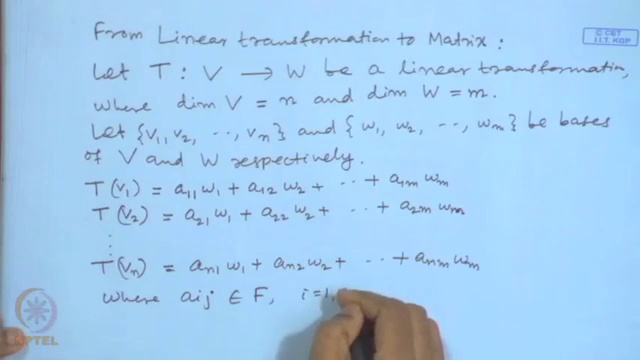 From Linear transformation to Matrix:
© CET
I.I.T. KGP
Let T: V → W be a linear transformation,
where dim V = n and dim W = m.
Let {v₁, v₂, .., vₙ} and {w₁, w₂, .., wₘ} be bases
of V and W respectively.
T(v₁) = a₁₁w₁ + a₁₂w₂ + .. + a₁ₘwₘ
T(v₂) = a₂₁w₁ + a₂₂w₂ + .. + a₂ₘwₘ
⋮
T(vₙ) = aₙ₁w₁ + aₙ₂w₂ + .. + aₙₘwₘ
where aij ∈ F, i=1,
NPTEL